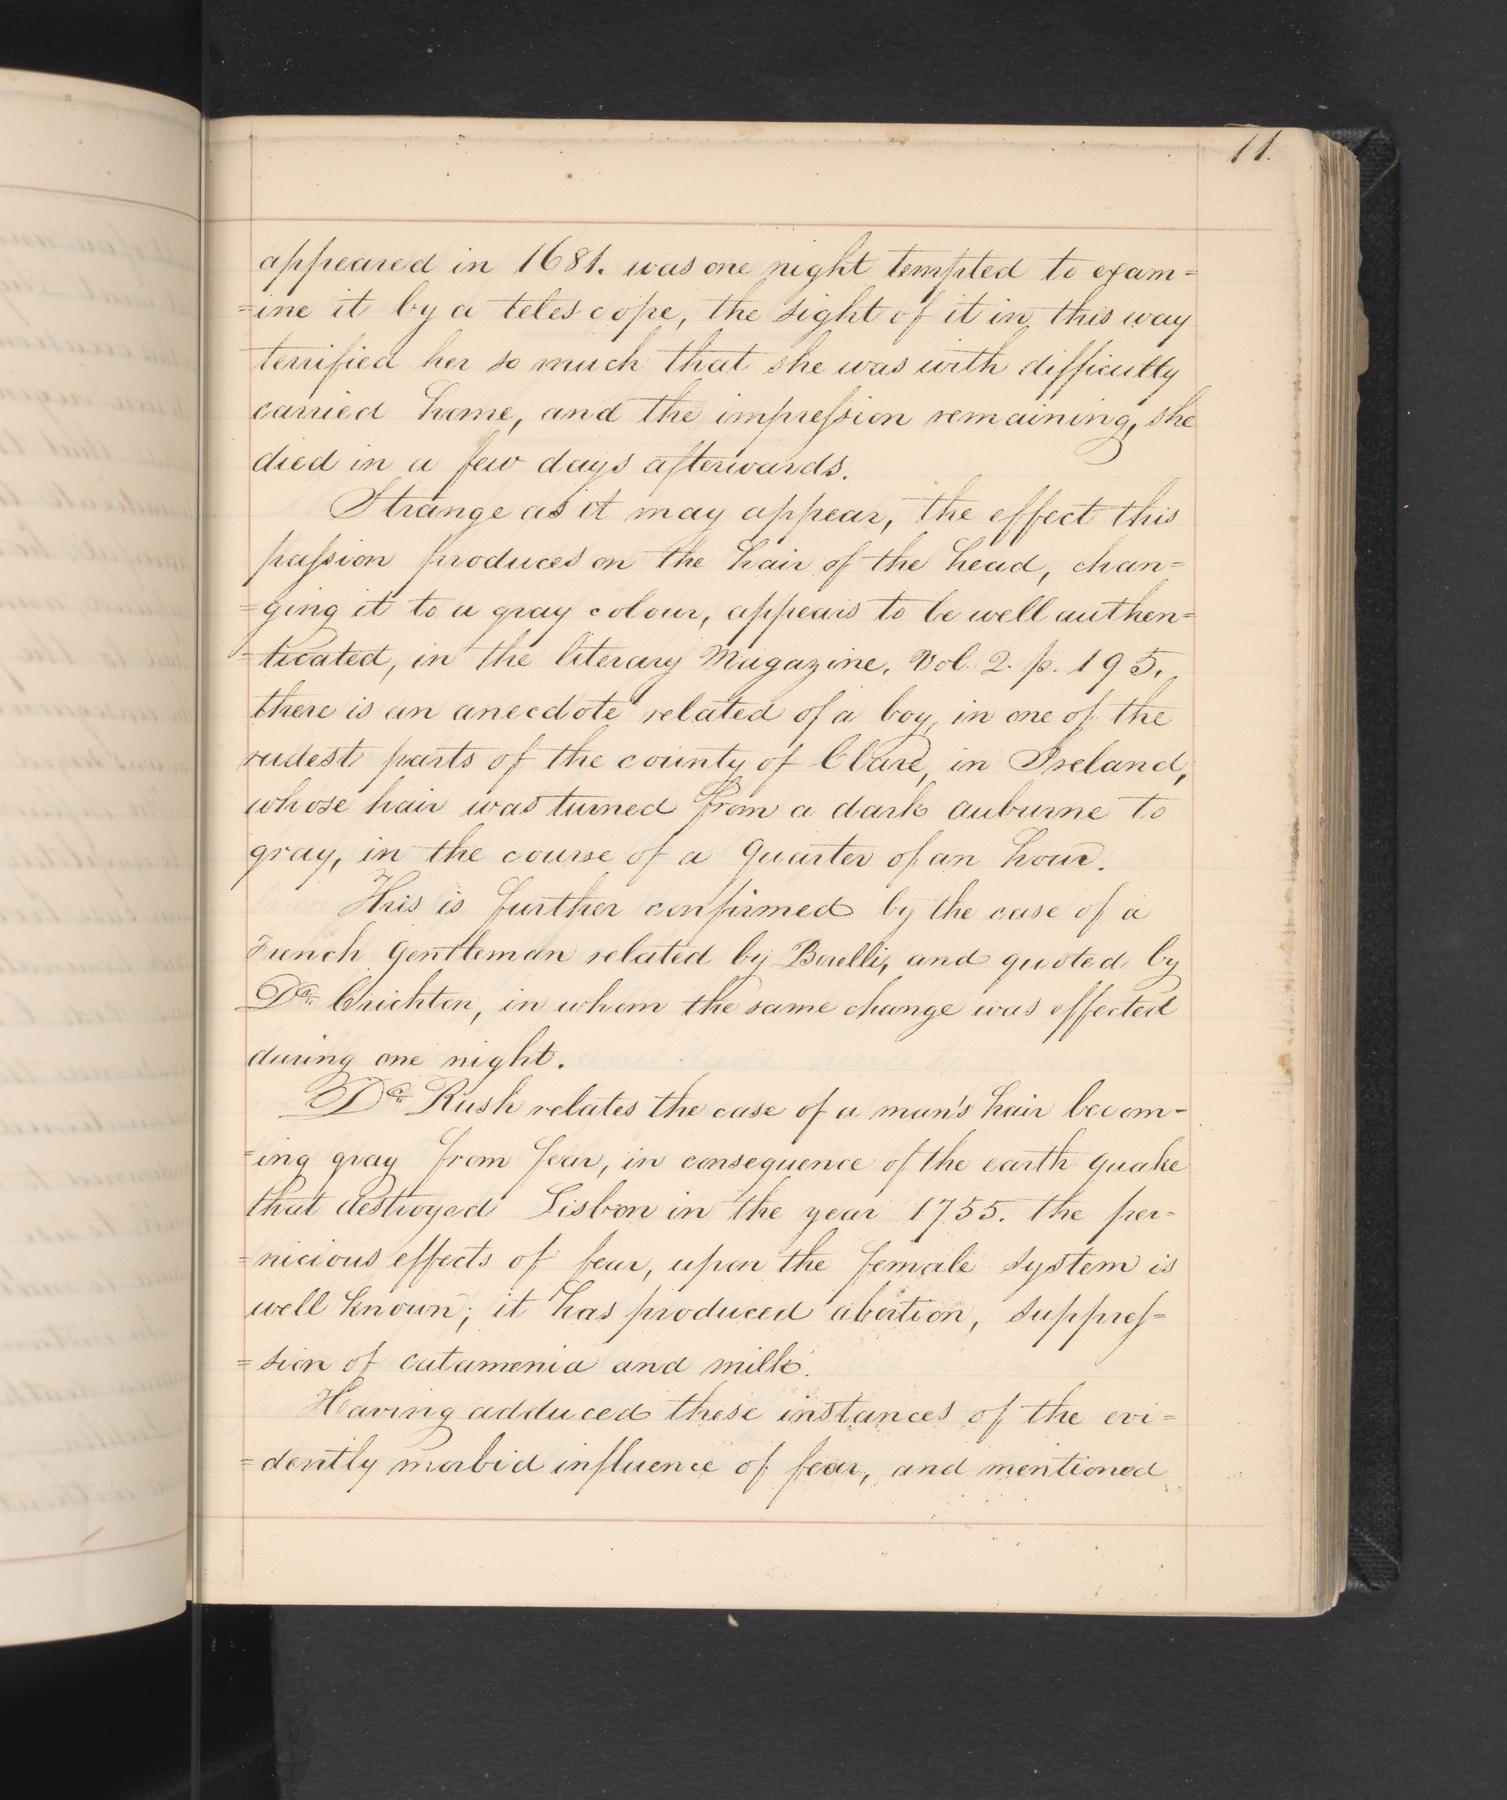 11.
appeared in 1681. was one night tempted to exam=
=ine it by a telescope, the sight of it in this way
terrified her so much that she was with difficulty
carried home, and the impreſsion remaining, she
died in a few days afterwards.
Strange as it may appear, the effect this
paſsion produces on the hair of the head, chan=
=ging it to a gray colour, appears to be well authen=
=ticated, in the literary Magazine, Vol. 2. p. 195.,
there is an anecdote related of a boy, in one of the
rudest parts of the county of Clare, in Ireland,
whose hair was turned from a dark auburne to
gray, in the course of a quarter of an hour.
This is further confirmed by the case of a
French gentleman related by Borelli, and quoted by
Dr. Crichton, in whom the same change was effected
during one night.
Dr. Rush relates the case of a man's hair becom=
=ing gray from fear, in consequence of the earth quake
that destroyed Lisbon in the year 1755. the per=
=nicious effects of fear, upon the female system is
well known; it has produced abortion, suppreſ=
=sion of catamenia and milk.
Having adduced these instances of the evi=
=dently morbid influence of fear, and mentioned